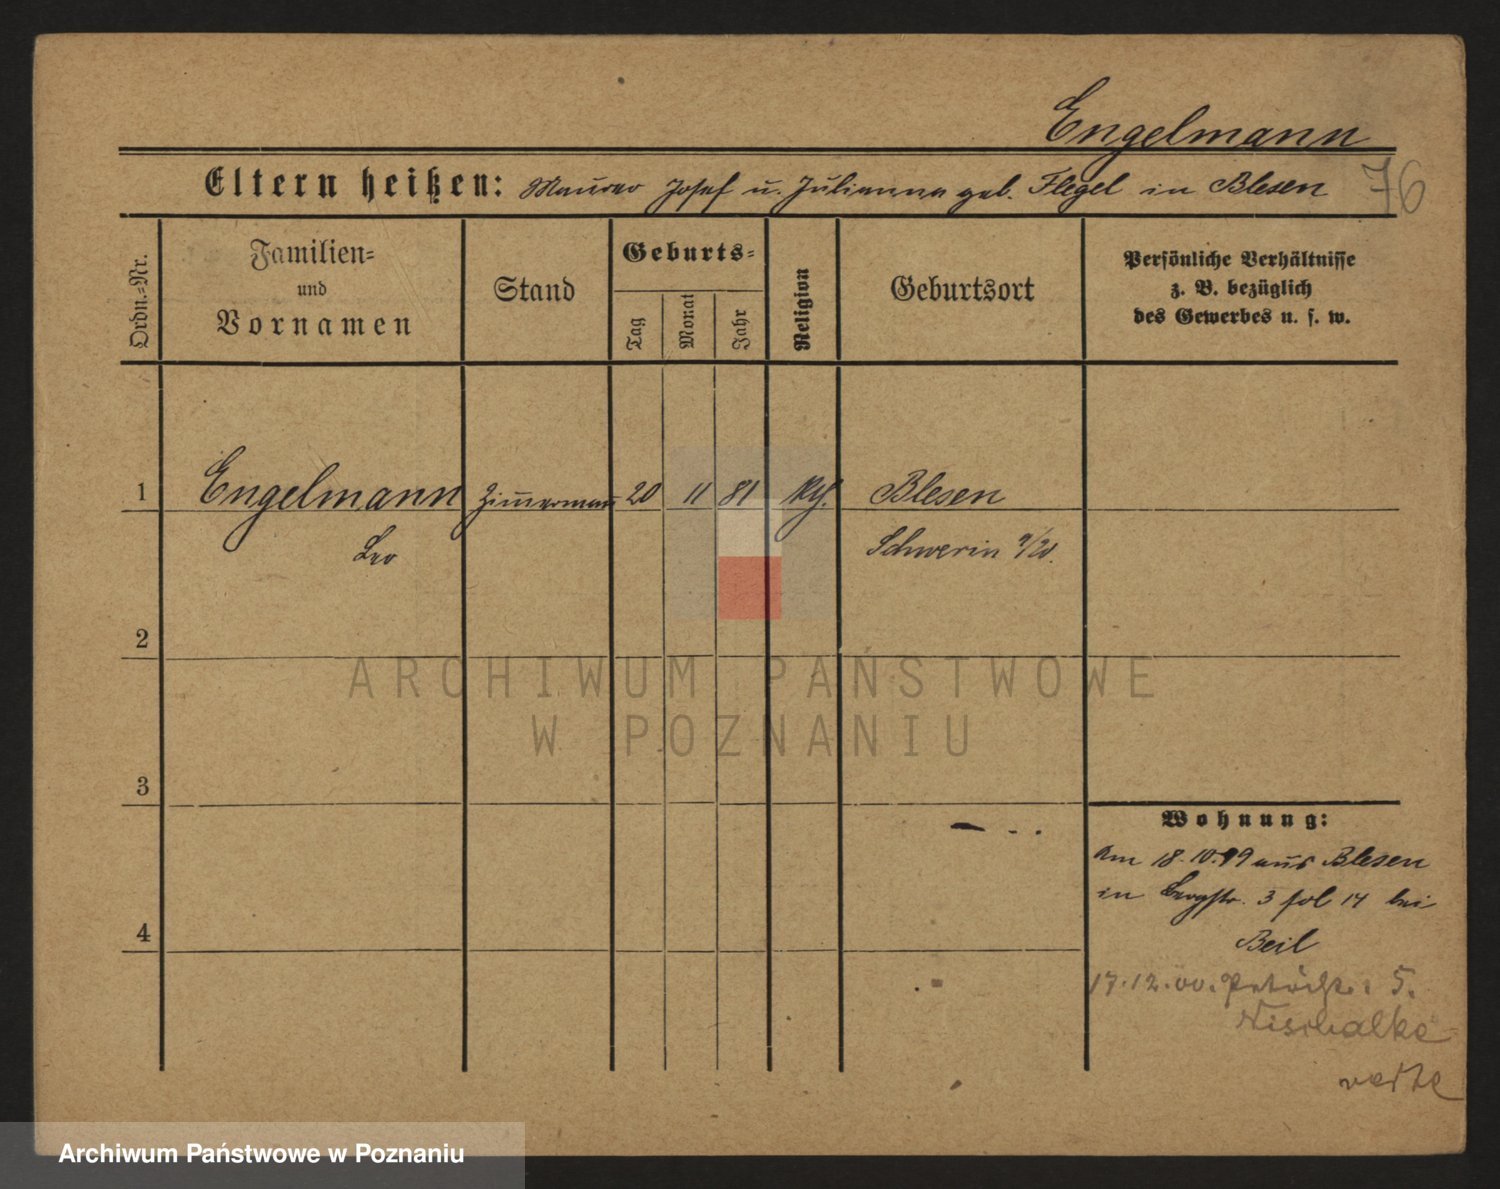 Engelmann
Eltern heißen: Maurer Josef u. Julianna geb. Flegel in Blesen
76
Ordn.-Nr.
Familien-
und
Vornamen
Stand
Geburts-
Tag
Monat
Jahr
Religion
Geburtsort
Persönliche Verhältnisse
z. B. bezüglich
des Gewerbes u. s. w.
1 Engelmann Zimmermann 20 11 81 kth. Blesen
Leo Schwerin a/W.
2
ARCHIWUM PAŃSTWOWE
W POZNANIU
3
Wohnung:
Am 18.10.99 aus Blesen
in Bergstr. 3 fol 14 bei
4
Beil
17.12.00. 5.
Nischalke
verte
Archiwum Państwowe w Poznaniu